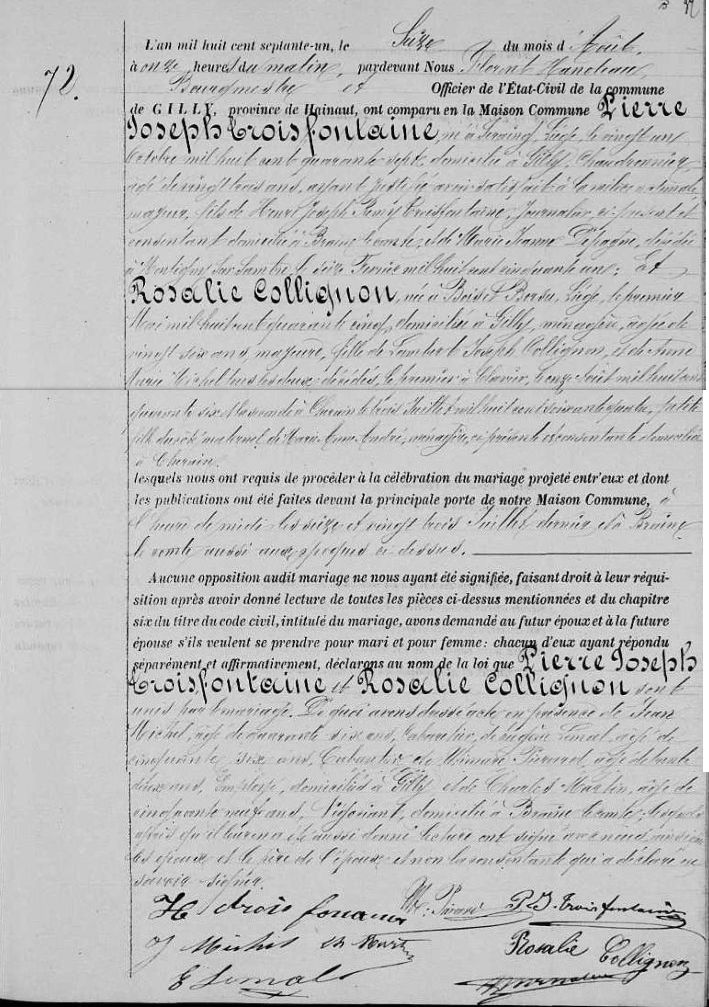 72.
L'an mil huit cent septante-un, le Seize du mois d'Août
à onze heures du matin, pardevant Nous Florent Handeau,
Bourgmestre et Officier de l'État-Civil de la commune
de GILLY, province de Hainaut, ont comparu en la Maison Commune Pierre
Joseph Croisfontaine, né à Seraing, Liége, le vingt un
Octobre mil huit cent quarante sept, domicilié à Gilly, Chaudronnier,
agé de vingt trois ans, ayant justifié avoir satisfait à la milice nationale
majeur, fils de Henri Joseph Remy Croisfontaine, Journalier, ci présent et
consentant domicilié à Braine lecomte, et de Marie Jeanne Depagne, décédée
à Montigny sur Sambre le seize Février mil huit cent cinquante un; Et
Rosalie Collignon, née à Bois et Borsu, Liége, le premier
Mai mil huit cent quarante cinq, domiciliée à Gilly, ménagère, agée de
vingt six ans, majeure, fille de Lambert Joseph Collignon, et de Anne
Marie Michel tous les deux décédés, le premier à Clavier, le onze Août mil huit cent
quarante six et la seconde à Cherain le trois Juillet mil huit cent soixante quatre, petite
fille du côté maternel de Marie Anne André, ménagère, ci présente et consentante domiciliée
à Cherain.
lesquels nous ont requis de procéder à la célébration du mariage projeté entr'eux et dont
les publications ont été faites devant la principale porte de notre Maison Commune, à
l'heure de midi les seize et vingt trois Juillet dernier et à Braine
le comte aussi aux époques ci dessus.
Aucune opposition audit mariage ne nous ayant été signifiée, faisant droit à leur réqui-
sition après avoir donné lecture de toutes les pièces ci-dessus mentionnées et du chapitre
six du titre du code civil, intitulé du mariage, avons demandé au futur époux et à la future
épouse s'ils veulent se prendre pour mari et pour femme: chacun d'eux ayant répondu
séparément et affirmativement, déclarons au nom de la loi que Pierre Joseph
Croisfontaine et Rosalie Collignon sont
unis par le mariage. De quoi avons dressé acte en présence de Jean
Michel, agé de quarante six ans, Cabaretier, de Eugène Lemal agé de
cinquante six ans, Cabaretier de Pierard, agé de trente
deux ans, Employé, domiciliés à Gilly et de Charles Martin, agé de
cinquante neuf ans, Négociant, domicilié à Braine lecomte; lesquels
après qu'il leur en a été aussi donné lecture ont signé avec nous, ainsi que
les époux et le père de l'époux et non la consentante qui a déclaré ne
savoir signer.
H J croisfontaine Pierard P. J. Croisfontaine
J Michel Ch Martin Rosalie Collignon
E Lemal